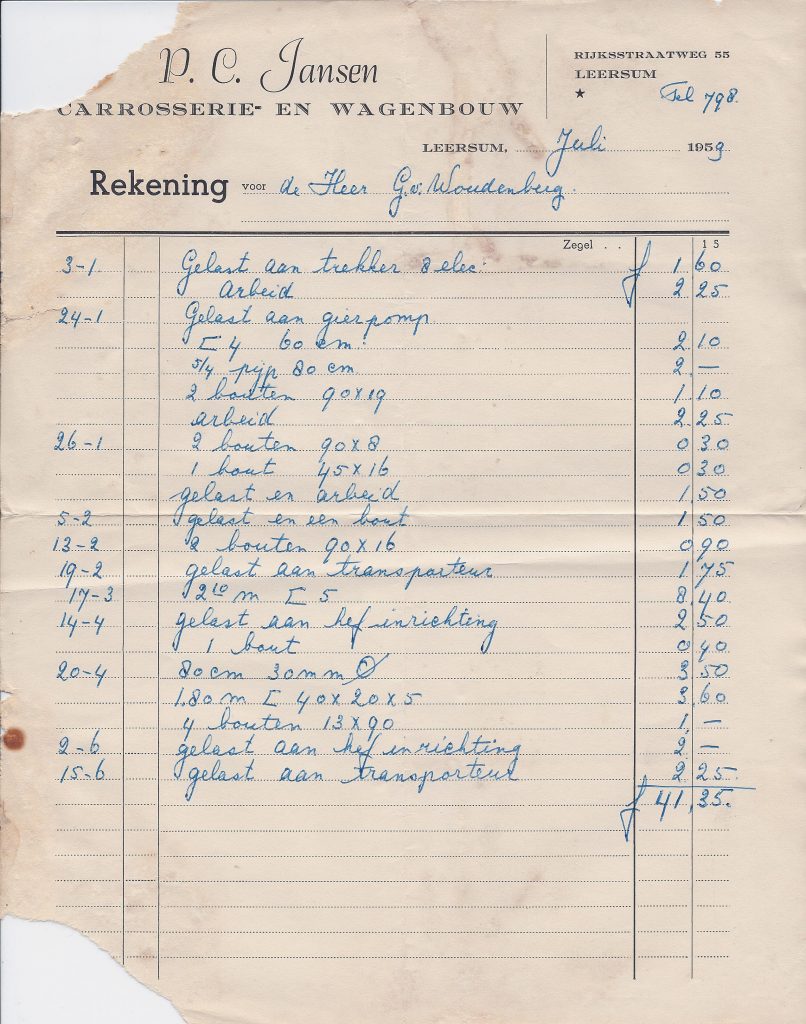 P. C. Jansen
CARROSSERIE- EN WAGENBOUW
RIJKSSTRAATWEG 55
LEERSUM
★ Tel 798.
LEERSUM, Juli 1959
Rekening voor de Heer G. v. Woudenberg.
Zegel . . 15
3-1 Gelast aan trekker 8 elec. f 1 60
Arbeid 2 25
24-1 Gelast aan gierpomp
[ 4 60 cm. 2 10
5/4 pijp 80 cm 2 —
2 bouten 90 x 19 1 10
arbeid 2 25
26-1 2 bouten 90 x 8 0 30
1 bout 45 x 16 0 30
gelast en arbeid 1 50
5-2 gelast en een bout 1 50
13-2 2 bouten 90 x 16 0 90
19-2 gelast aan transporteur 1 75
17-3 2 10 m [ 5 8 40
14-4 gelast aan hef inrichting 2 50
1 bout 0 40
20-4 80 cm 30 mm 3 50
1.80 m [ 40 x 20 x 5 3 60
4 bouten 13 x 90 1 —
2-6 gelast aan hef inrichting 2 —
15-6 gelast aan transporteur 2 25
f 41,35.